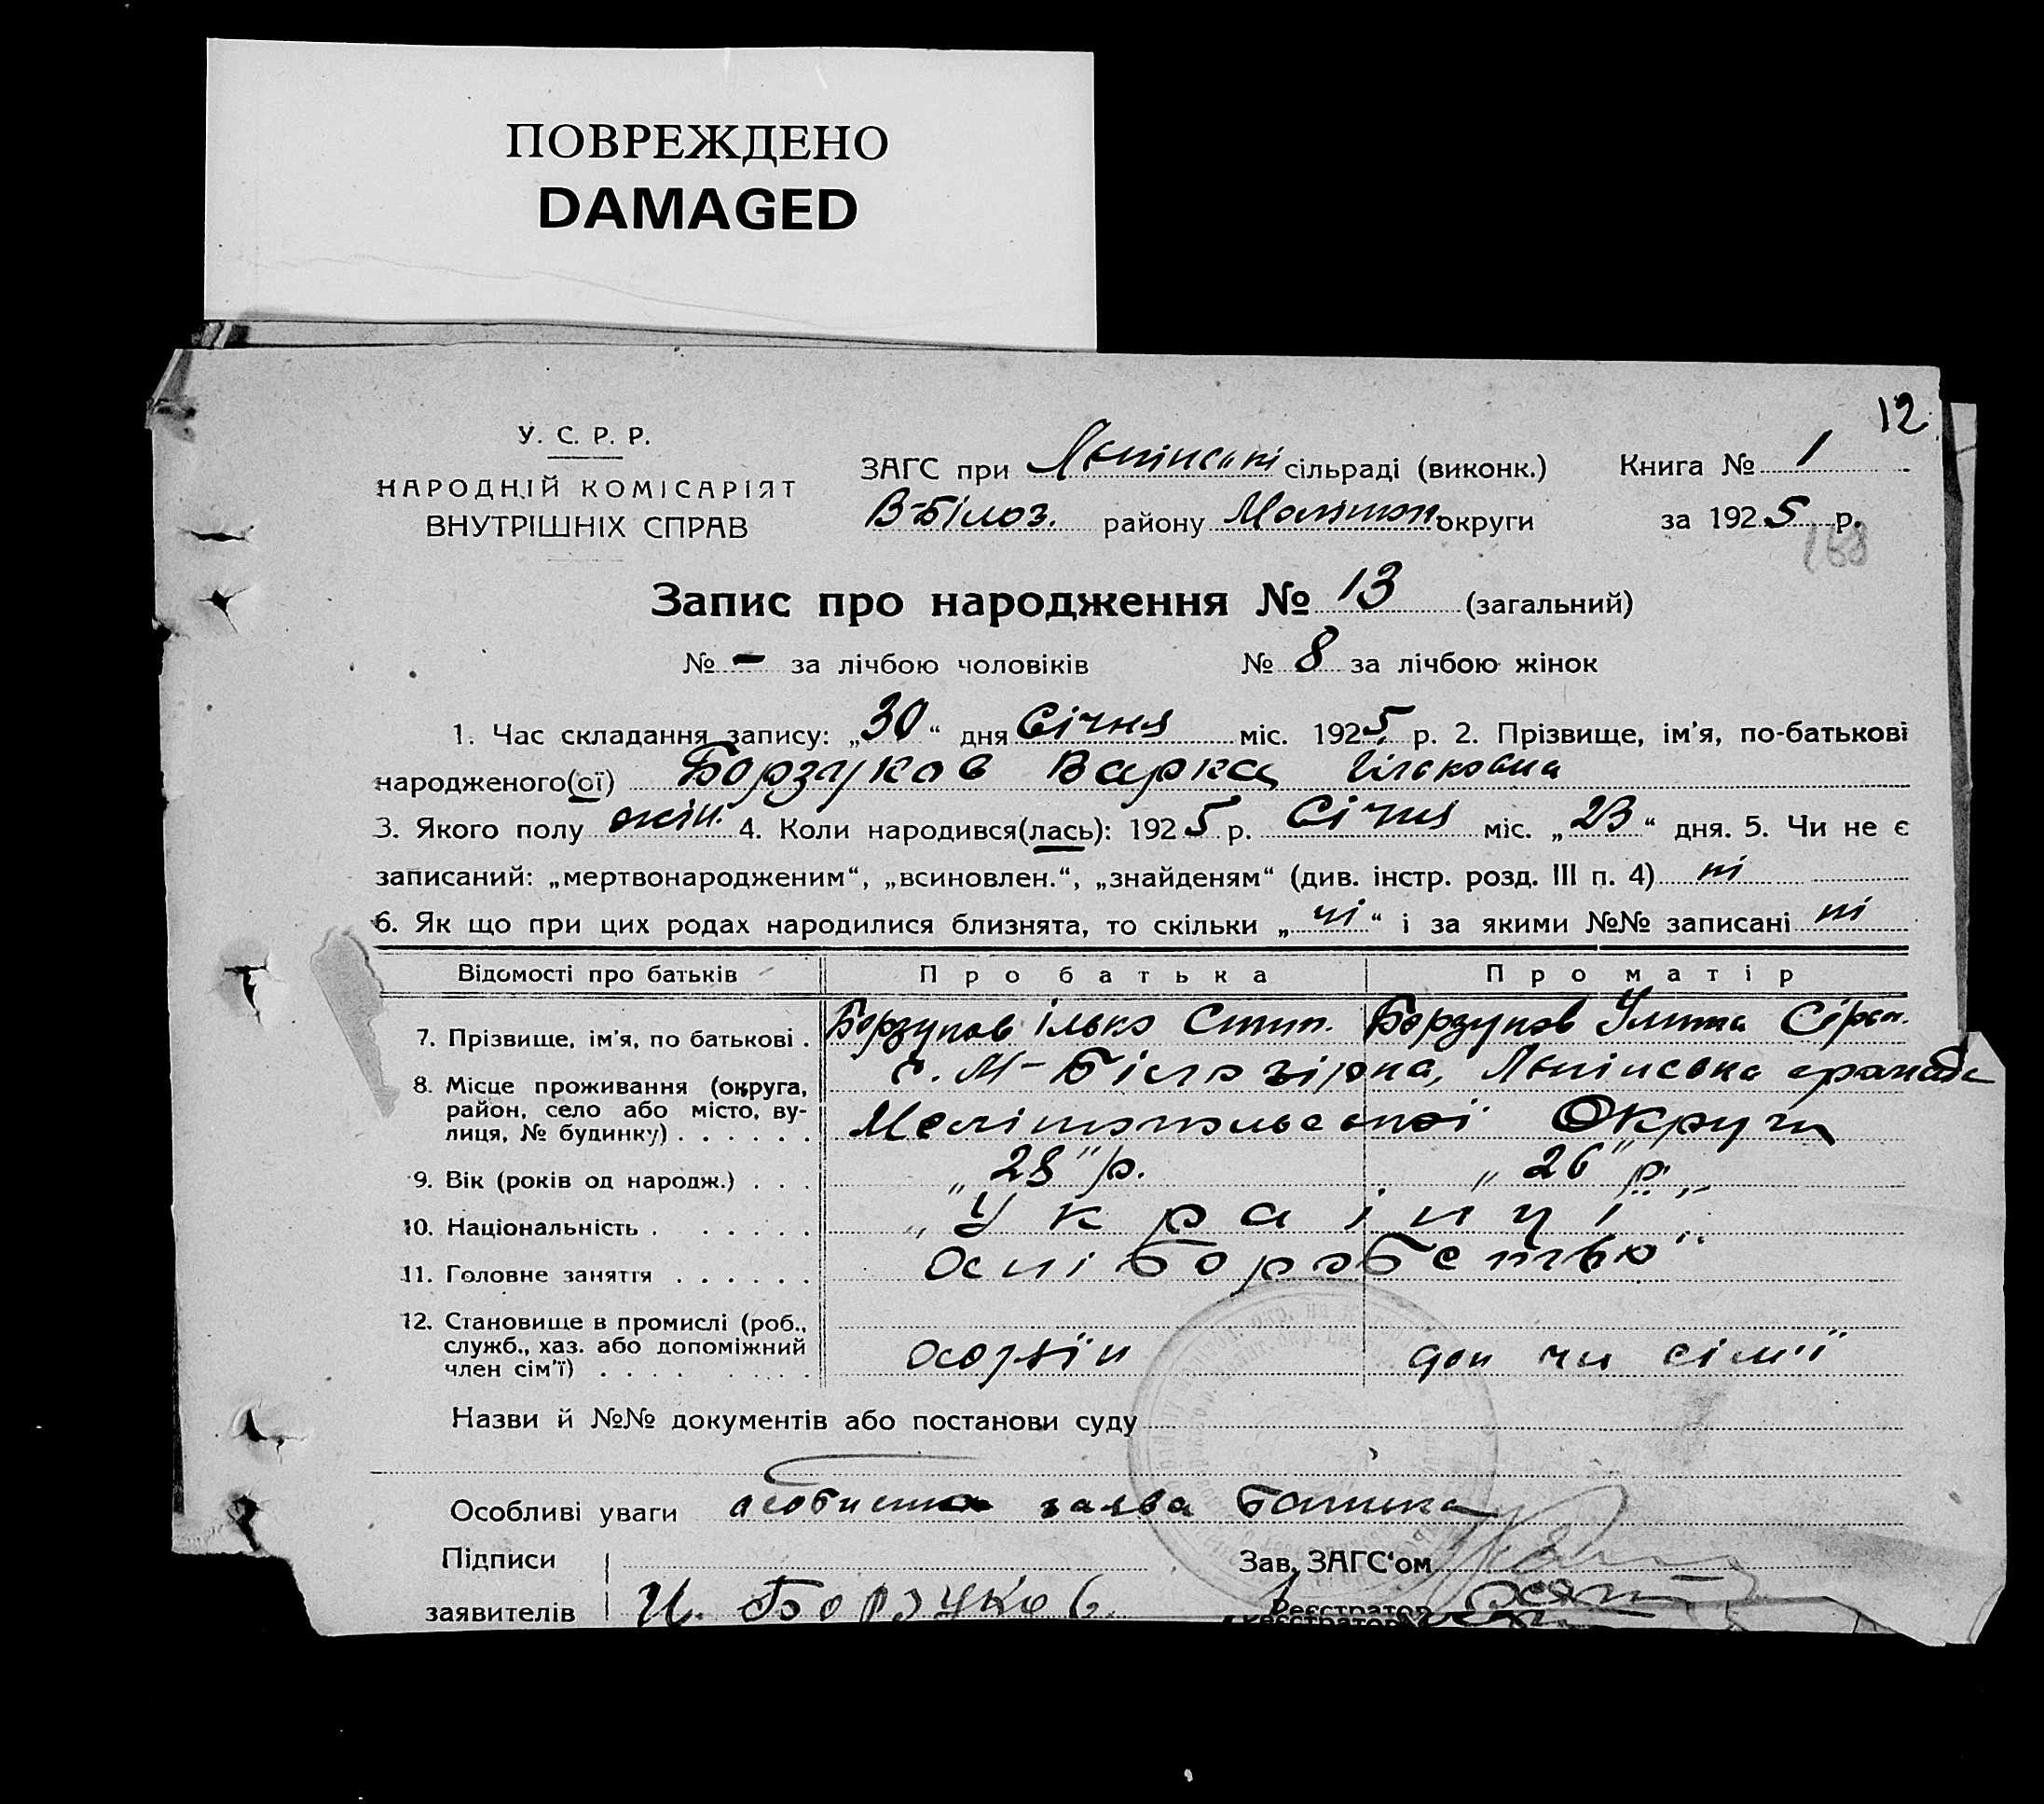 ПОВРЕЖДЕНО
DAMAGED
12
У. С. Р. Р.
НАРОДНІЙ КОМІСАРІЯТ
ВНУТРІШНІХ СПРАВ
ЗАГС при сільраді (виконк.) Книга № 1
В-Білоз. району Мелітоп. округи за 1925 р.
188
Запис про народження № 13 (загальний)
№ - за лічбою чоловіків № 8 за лічбою жінок
1. Час складання запису: „30“ дня Січня міс. 1925 р. 2. Прізвище, ім'я, по-батькові
народженого(ої) Борзуков Варка Ільковна
3. Якого полу жін. 4. Коли народився(лась): 1925 р. Січня міс. „23“ дня. 5. Чи не є
записаний: „мертвонародженим“, „всиновлен.“, „знайденям“ (див. інстр. розд. III п. 4) ні
6. Як що при цих родах народилися близнята, то скільки „ні“ і за якими №№ записані ні
Відомості про батьків Про батька Про матір
7. Прізвище, ім'я, по батькові . Борзуков Ілько Борзуков Улита
8. Місце проживання (округа, с. М-Білозірка,
район, село або місто, ву-
лиця, № будинку) . . . . . . Мелітопольської Округи
9. Вік (років од народж.) . . . „28“ р. „26“ р.
10. Національність . . . . . . „Українці“
11. Головне заняття . . . . . .
12. Становище в промислі (роб.,
служб., хаз. або допоміжний
член сім'ї) . . . . . . . . доп чл сім'ї
Назви й №№ документів або постанови суду
Особливі уваги особиста заява батька
Підписи Зав. ЗАГС'ом
заявителів И. Борзуков. Реєстратор